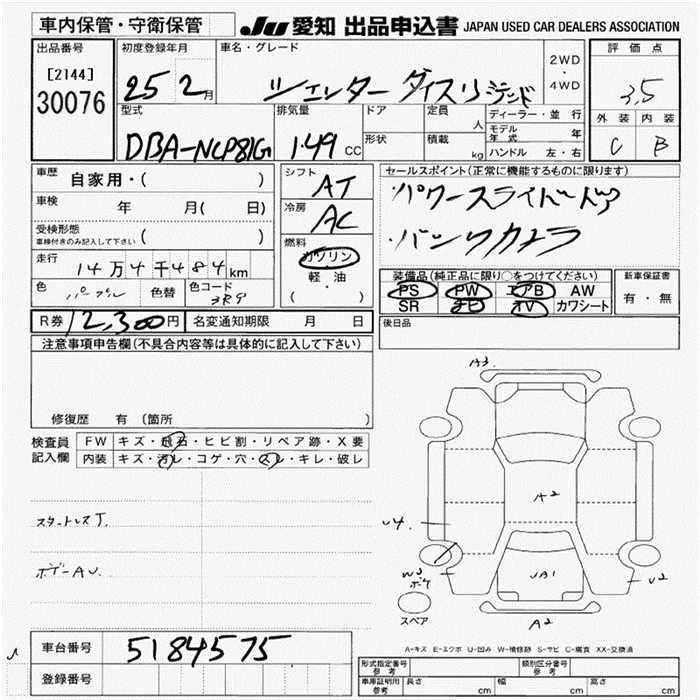 車内保管・守衛保管 JU 愛知 出品申込書 JAPAN USED CAR DEALERS ASSOCIATION
出品番号 初度登録年月 車名・グレード 2WD・4WD 評価点
[2144] 30076 25 2月 シエンター ダイス 3.5
型式 排気量 ドア 定員 人 ディーラー・並行 外装 内装
モデル年式 年
DBA-NCP81G 1.49 CC 形状 積載 kg ハンドル 左・右 C B
車歴 自家用・( ) シフト AT セールスポイント(正常に機能するものに限ります)
車検 年 月( 日) 冷房 AC パワースライドドア
受検形態 車検付きのみ記入して下さい ( ) 燃料 ガソリン バックカメラ
走行 14万4千484km 軽・油 ( ) 装備品(純正品に限り○をつけてください) 新車保証書
色 パープル 色替 色コード 3R9 PS PW エアB AW 有・無
SR ナビ TV カワシート
R券 12,300円 名変通知期限 月 日 後日品
注意事項申告欄(不具合内容等は具体的に記入して下さい)
修復歴 有 (箇所 )
検査員記入欄 FW キズ・飛石・ヒビ割・リペア跡・X要
内装 キズ・汚レ・コゲ・穴・スレ・キレ・破レ
スタートレスT.
ボデーAU.
A3
A2
U4
W3
ボケ
UA1
U2
スペア A2
A-キズ E-エクボ U-凹み W-補修跡 S-サビ C-腐食 XX-交換済
車台番号 5184575
登録番号
形式指定番号 参考 類別区分番号 参考
車庫証明用 参考 長さ cm 幅 cm 高さ cm